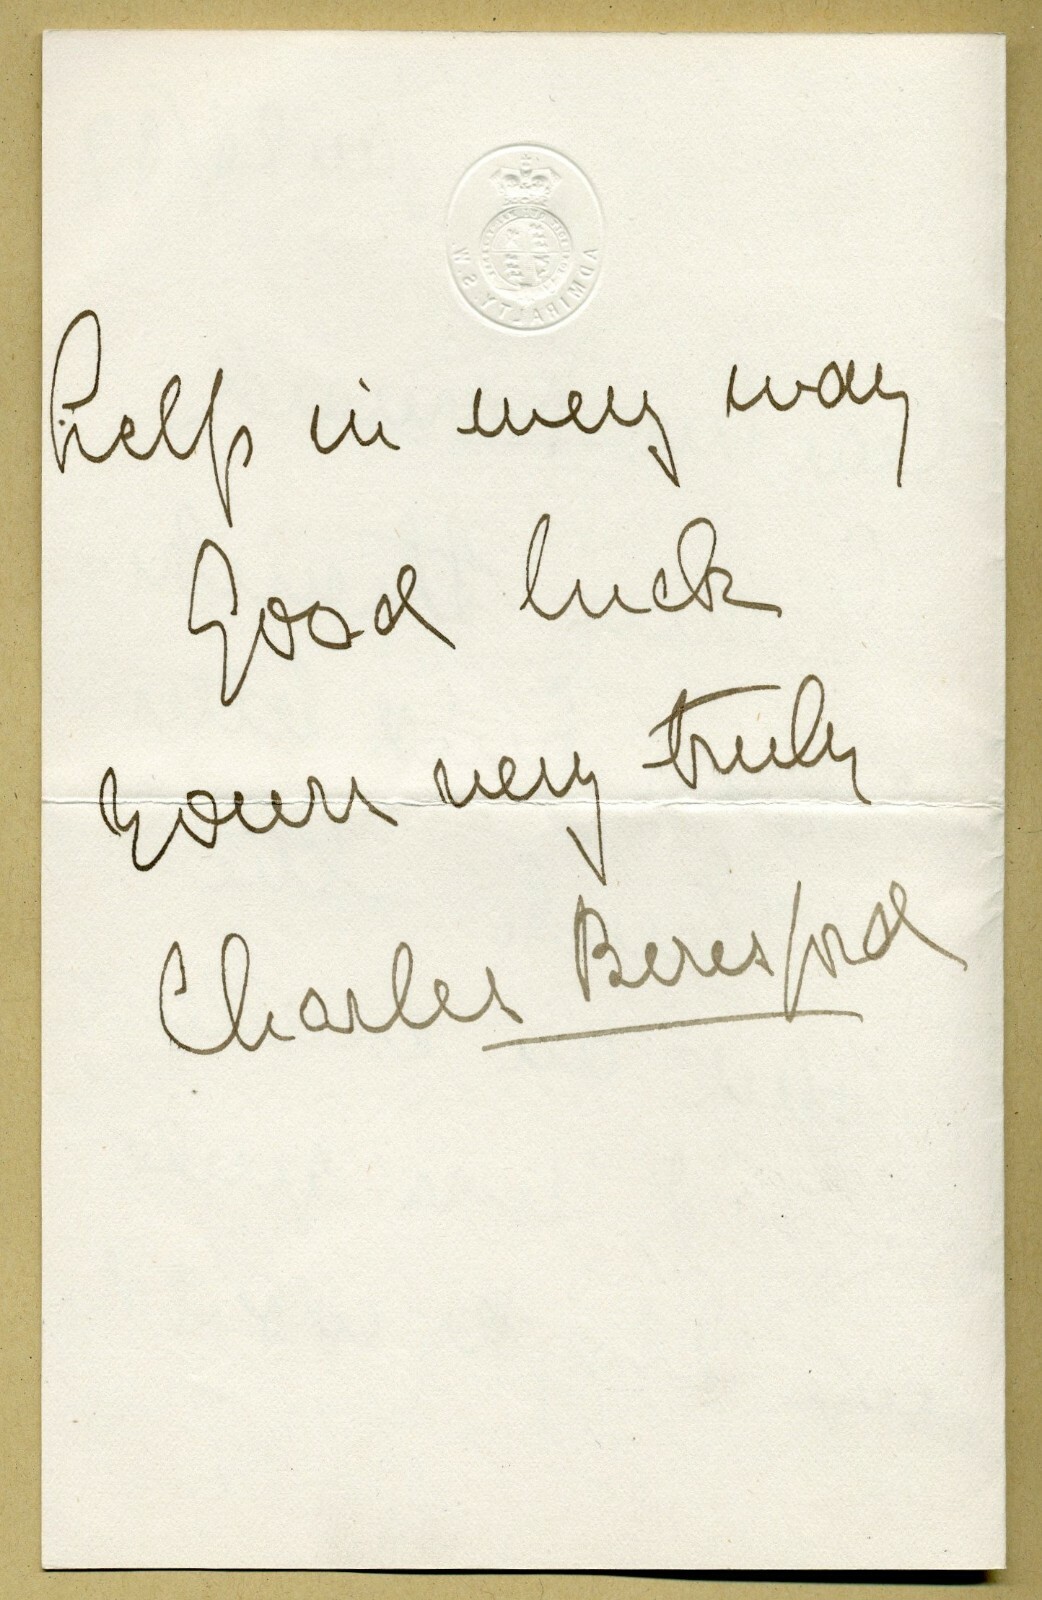 ADMIRALTY. S.W
help in every way
Good luck
Yours very truly
Charles Beresford